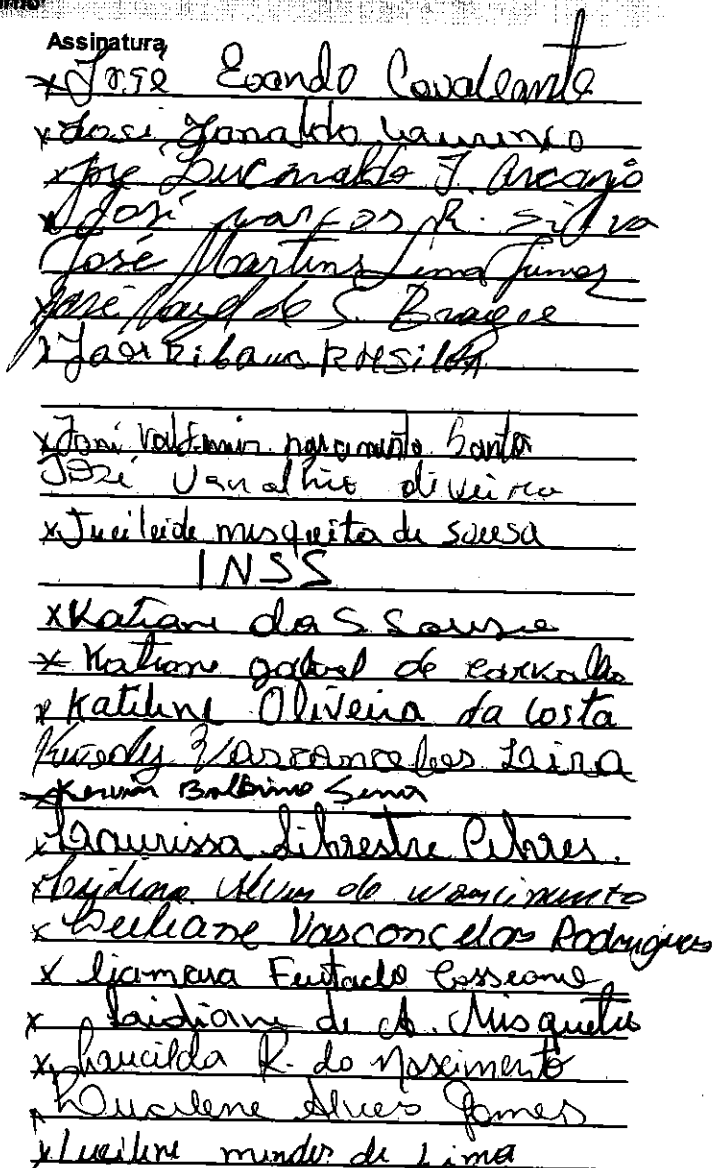 Assinatura
x José Evando Cavalcante
x José Jonaldo Lourenço
x José Lucinaldo J. Arcanjo
x José marcos R. Silva
José Martins Lima Junior
José de S. Braga
x
x José Valdemir nascimento Santos
José oliveira
x Jucileide misquita de sousa
INSS
x Katiane da S Sousa
x Katiane gabriel de carvalho
x Katilene Oliveira da Costa
Kenedy Vasconcelos Lira
x Balbino Sena
x Laurissa Silvestre
x Alves do nascimento
x Leiliane Vasconcelos Rodrigues
x Furtado
x Laidiane de A. Misquita
x Laucilda R. do Nascimento
x Lucilene Alves Gomes
x Lucilene mendes de Lima